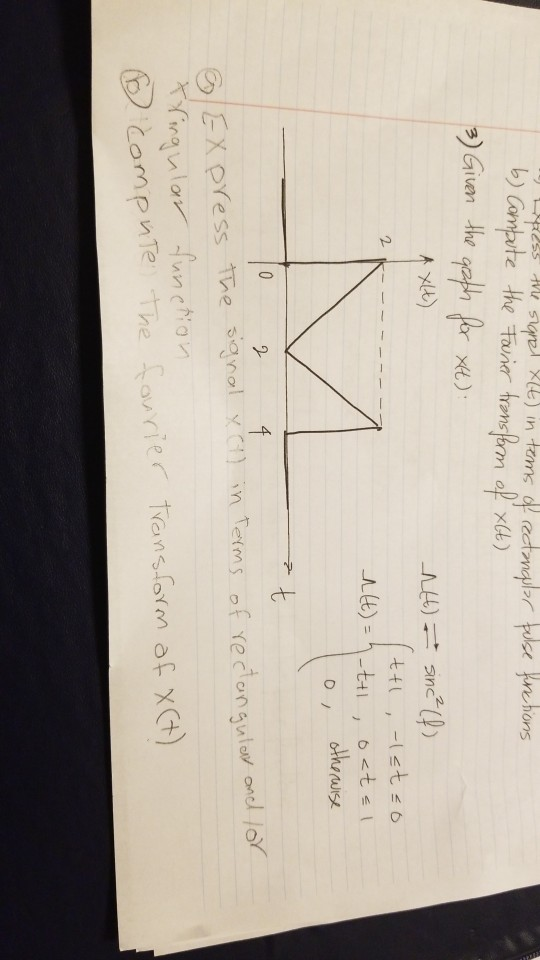 Express the signal x(t) in terms of rectangular pulse functions
b) Compute the Fourier transform of x(t)
3) Given the graph for x(t):
x(t)
2
0
2
4
t
Λ(t) ⇌ sinc²(f)
Λ(t) = { t+1 , -1≤t≤0
-t+1 , 0<t≤1
0 , otherwise
a) Express the signal x(t) in terms of rectangular and/or
tringular function
b) Compute the fourier transform of x(t)